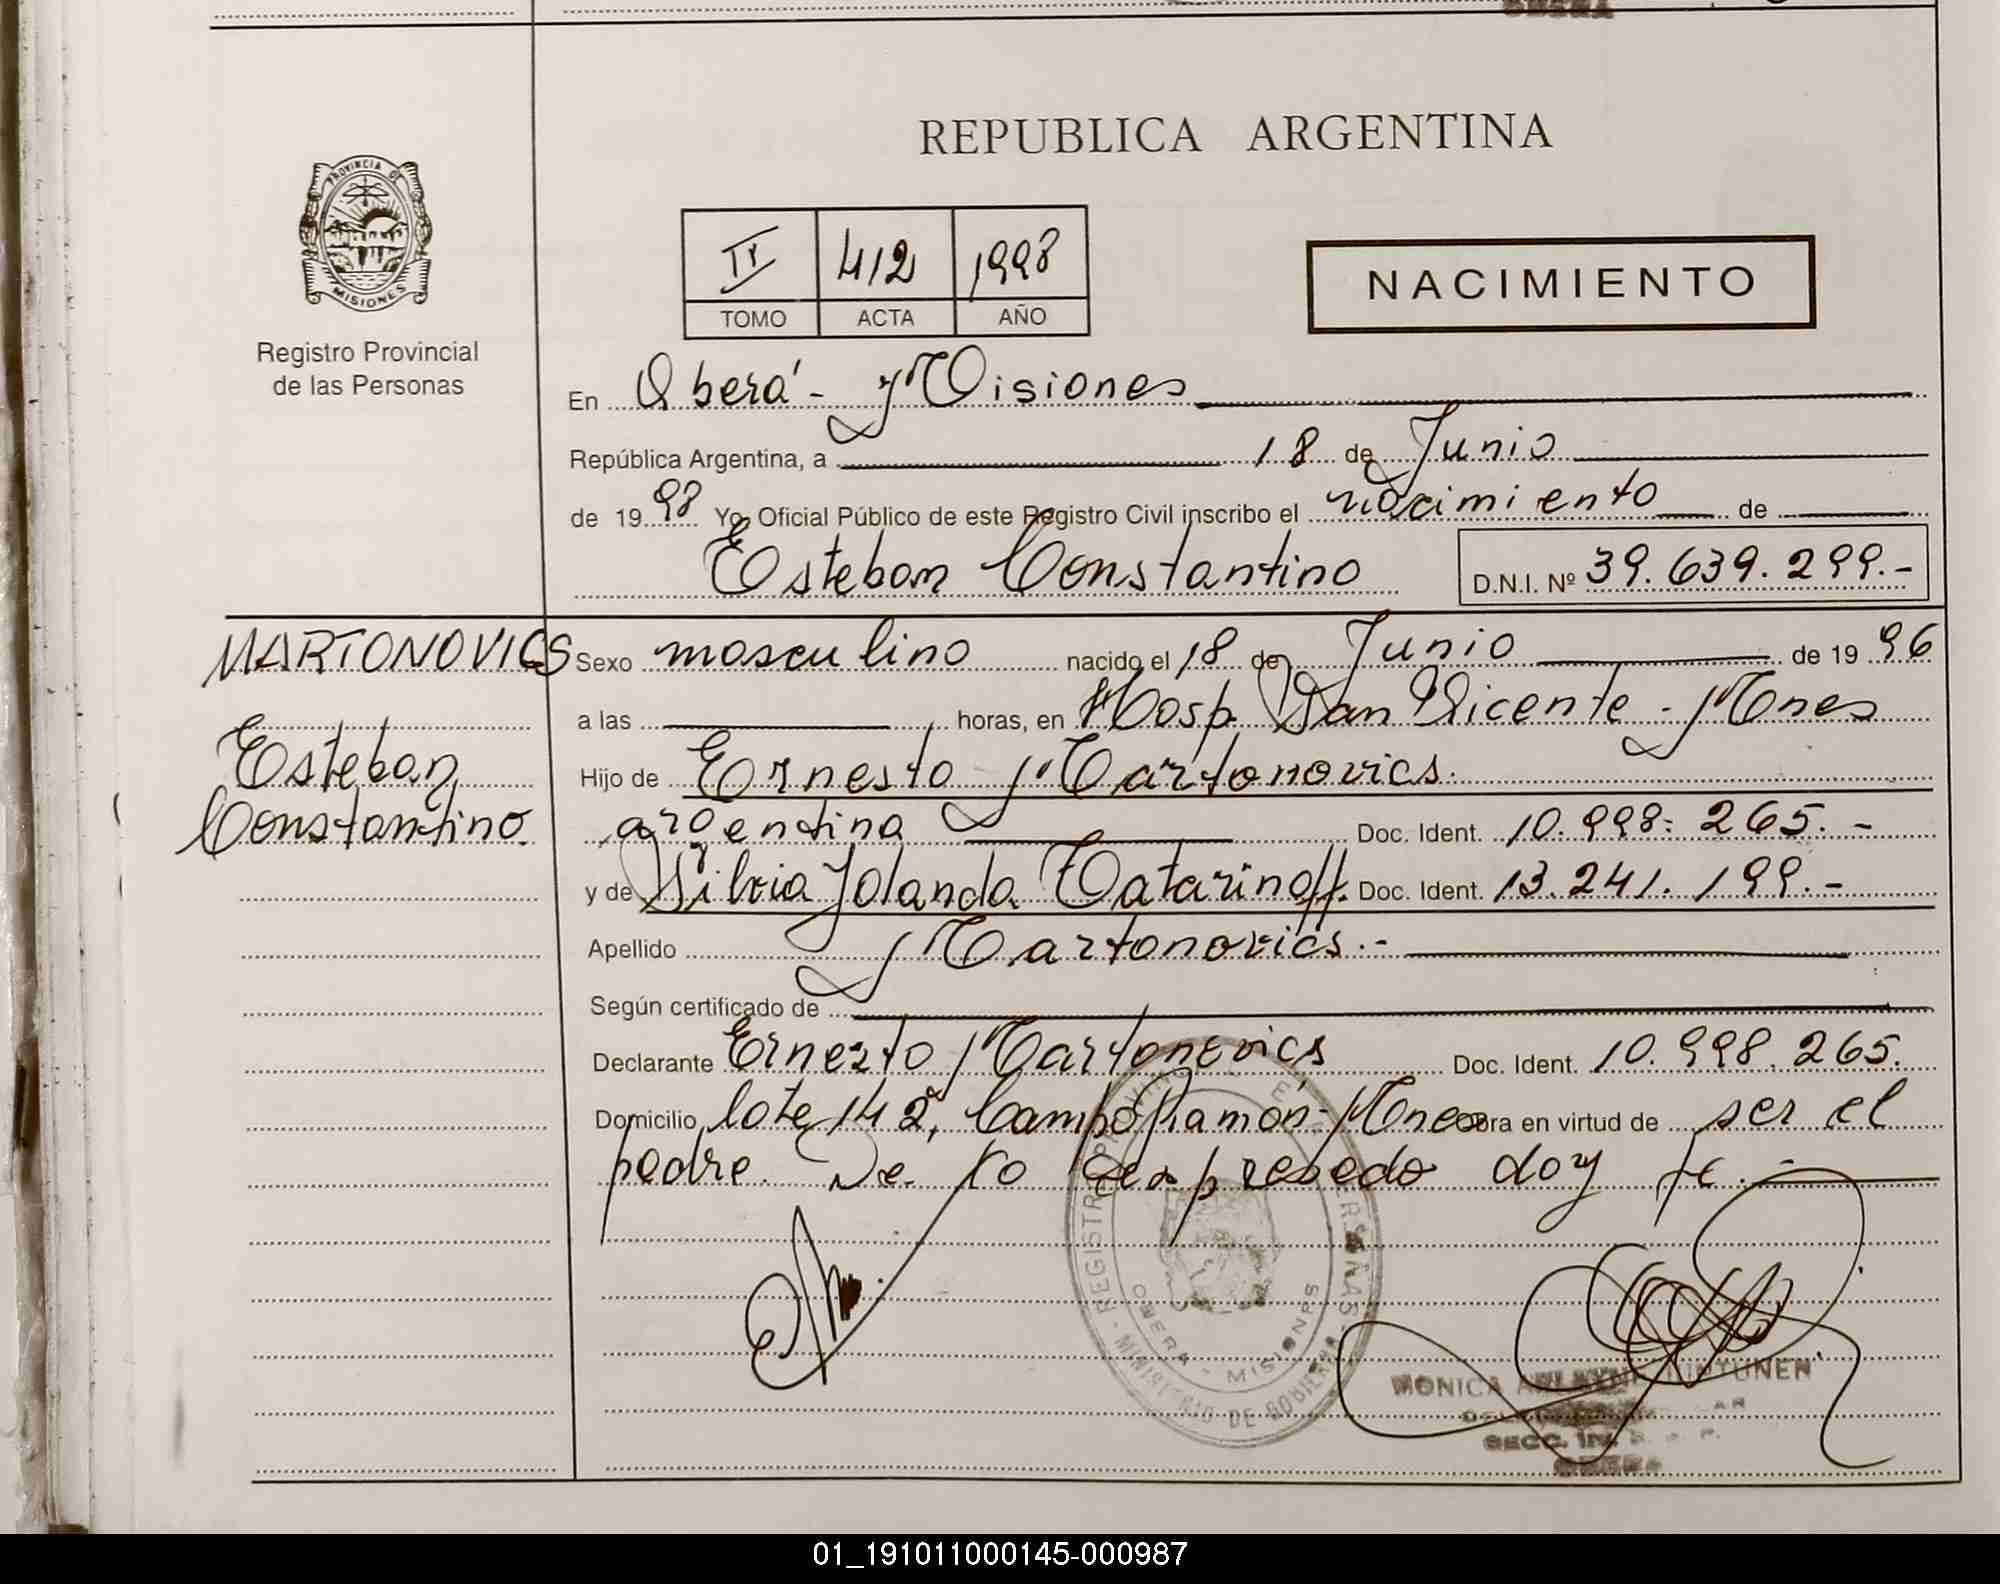 REPUBLICA ARGENTINA
PROVINCIA DE
MISIONES
Registro Provincial
de las Personas
II 412 1998
TOMO ACTA AÑO
NACIMIENTO
En Oberá - Misiones
República Argentina, a 18 de Junio
de 1998 Yo, Oficial Público de este Registro Civil inscribo el nacimiento de
Esteban Constantino D.N.I. Nº 39.639.299.-
MARTONOVICS Sexo masculino nacido el 18 de Junio de 1996
a las horas, en Hosp. San Vicente - Mnes
Esteban Hijo de Ernesto Martonovics.
Constantino. argentina Doc. Ident. 10.998.265.-
y de Silvia Yolanda Tatarinoff. Doc. Ident. 13.241.199.-
Apellido Martonovics.-
Según certificado de
Declarante Ernesto Martonovics Doc. Ident. 10.998.265.
Domicilio lote 142, Campo Ramón - Mnes obra en virtud de ser el
padre. De lo expresado doy fe.
REGISTRO PROVIN
MINISTERIO DE GOBIERNO
OBERA - MISIONES
MONICA
SECC. IN.
OBERA
01_191011000145-000987